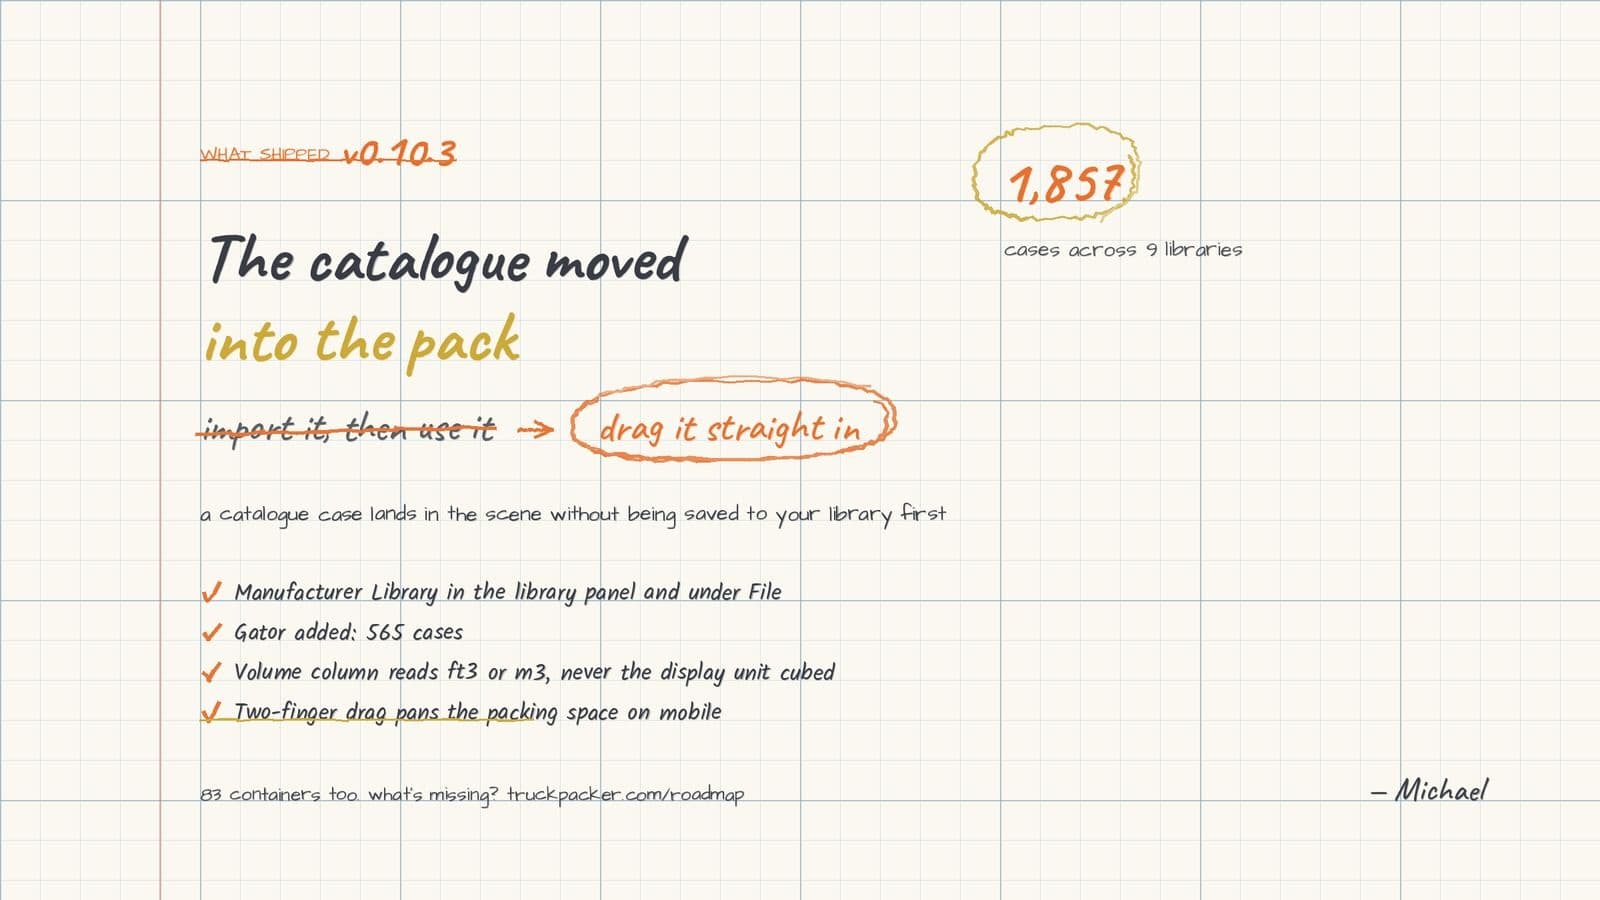 WHAT SHIPPED v0.10.3
1,857
cases across 9 libraries
The catalogue moved
into the pack
import it, then use it → drag it straight in
a catalogue case lands in the scene without being saved to your library first
✓ Manufacturer Library in the library panel and under File
✓ Gator added: 565 cases
✓ Volume column reads ft3 or m3, never the display unit cubed
✓ Two-finger drag pans the packing space on mobile
83 containers too. what's missing? truckpacker.com/roadmap
— Michael